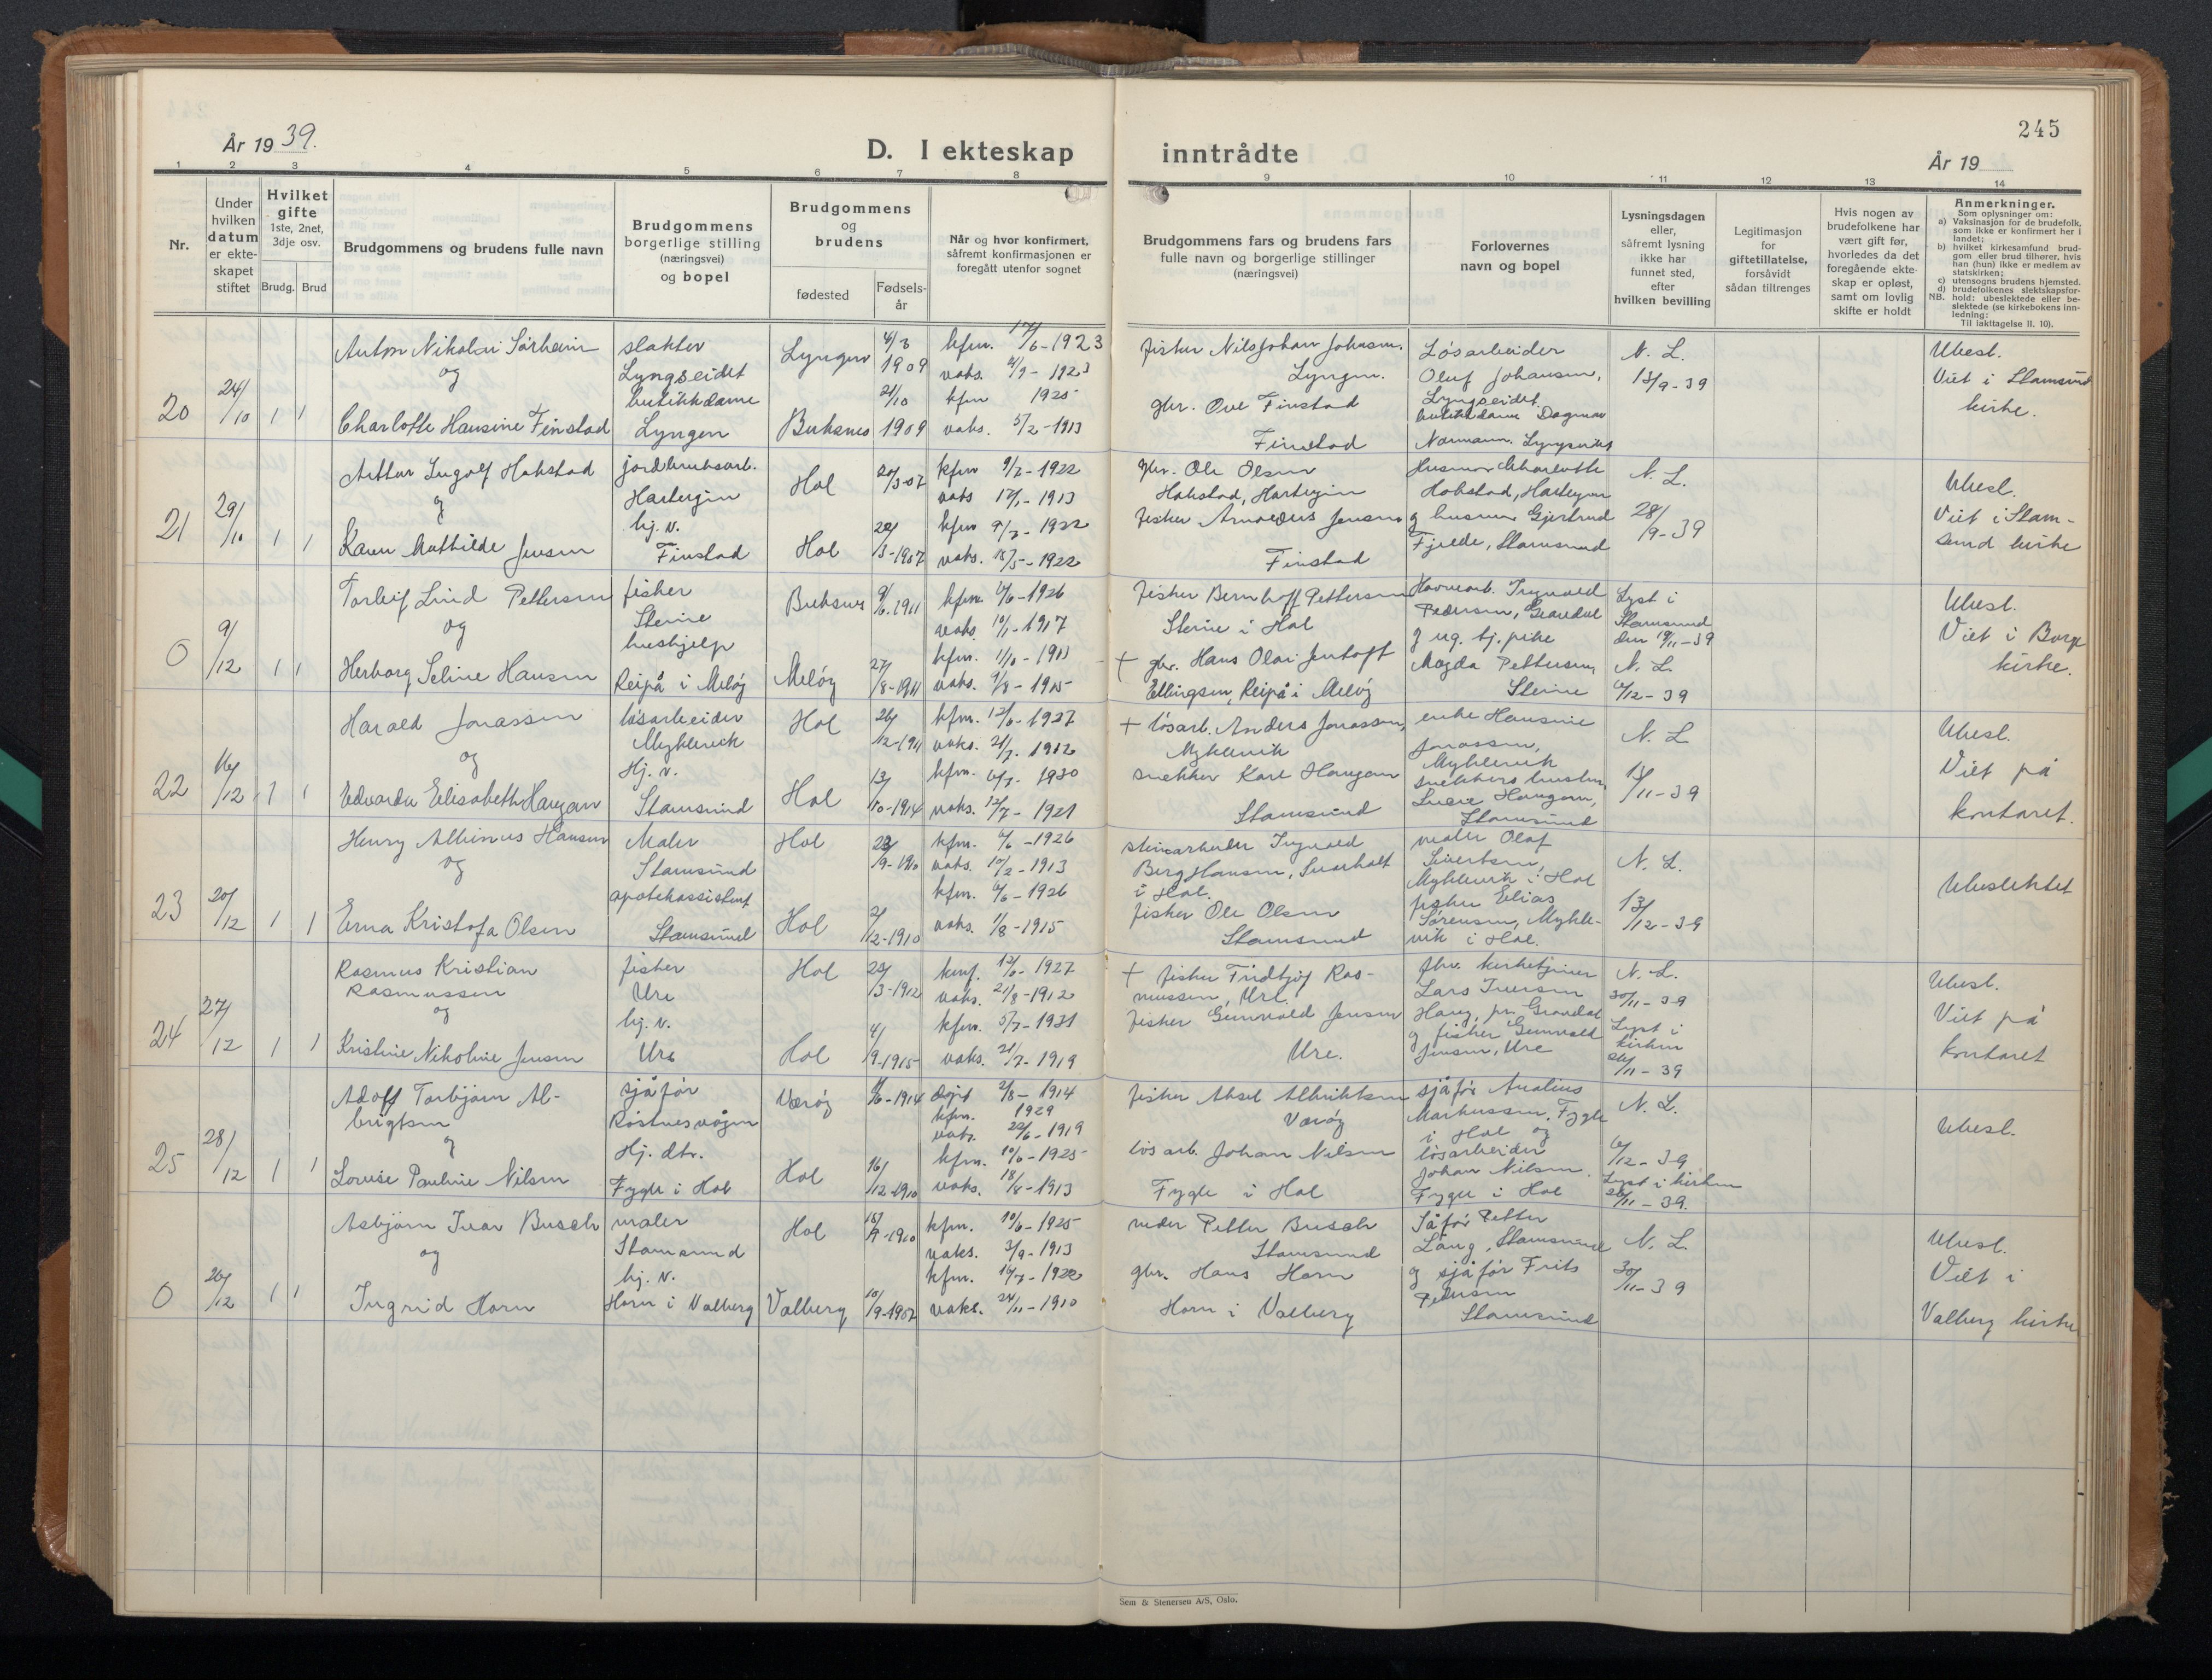 245
År 1939.
D. I ekteskap inntrådte
År 19
1 2 3 4 5 6 7 8 9 10 11 12 13 14
Nr.
Under hvilken datum er ekte-skapet stiftet
Hvilket gifte 1ste, 2net, 3dje osv.
Brudg. Brud
Brudgommens og brudens fulle navn
Brudgommens borgerlige stilling (næringsvei) og bopel
Brudgommens og brudens
fødested
Fødsels-år
Når og hvor konfirmert, såfremt konfirmasjonen er foregått utenfor sognet
Brudgommens fars og brudens fars fulle navn og borgerlige stillinger (næringsvei)
Forlovernes navn og bopel
Lysningsdagen eller, såfremt lysning ikke har funnet sted, efter hvilken bevilling
Legitimasjon for giftetillatelse, forsåvidt sådan tiltrenges
Hvis nogen av brudefolkene har vært gift før, hvorledes da det foregående ekte-skap er opløst, samt om lovlig skifte er holdt
Anmerkninger.
Som oplysninger om:
a) Vaksinasjon for de brudefolk, som ikke er konfirmert her i landet;
b) hvilket kirkesamfund brud-gom eller brud tilhører, hvis han (hun) ikke er medlem av statskirken;
c) utensogns brudens hjemsted.
d) brudefolkenes slektskapsfor-
NB. hold: ubeslektede eller be-slektede (se kirkebokens inn-ledning:
Til iakttagelse II. 10).
20 24/10 1 1
Anton Nikolai Sörheim
og
Charlotte Hansine Finstad
slakter
Lyngseidet
butikkdame
Lyngen
Lyngen 1909
Buksnes 21/10 1909
kfm. 17/6-1923
vaks. 1923
kfm 1925
vaks. 5/2-1913
fisker Nils Johan Johnsen.
Lyngen.
gbr. Ove Finstad
Finstad
Løsarbeider
Oluf Johansen,
Lyngseidet.
butikkdame Dagmar
Normann. Lyngseidet
N. L.
13/9-39
Ubesl.
Viet i Stamsund
kirke.
21 29/10 1 1
Arthur Ingolf Hokstad
og
Karen Mathilde Jensen
jordbruksarb.
Hartvigen
hj. v.
Finstad
Hol 20/3-07
Hol 22/3-1907
kfm 9/7-1922
vaks 1913
kfm 9/7-1922
vaks. 15/5-1922
gbr. Ole Olsen
Hokstad, Hartvigen
fisker Arnoldus Jensen
Finstad
Husmor Charlotte
Hokstad, Hartvigen
og husmor Gjertrud
Fjelde, Stamsund
N. L.
28/9-39
Ubesl.
Viet i Stam-
sund kirke
0 9/12 1 1
Torleif Lind Pettersen
og
Herborg Seline Hansen
fisker
Steine
hushjelp
Reipå i Meløy
Buksnes 9/6-1911
Meløy 27/8-1911
kfm. 1926
vaks. 10/1-1917
vaks. 9/8-1915
fisker Bernhoff Pettersen
Steine i Hol
† gbr. Hans Olai Jentoft
Ellingsen, Reipå i Meløy
Havnearb. Ingvald
Pedersen, Gravdal
og ug. tj. pike
Magda Pettersen
Steine
Lyst i
Stamsund
den 19/11-39
N. L.
6/12-39
Ubesl.
Viet i Borge
kirke.
22 16/12 1 1
Harald Jonassen
og
Edvarda Elisabeth Haugan
løsarbeider
Myklevik
Hj. v.
Stamsund
Hol 26/12-1911
Hol 13/10-1914
kfm. 12/6-1927
vaks. 21/7-1912
kfm. 6/7-1930
vaks. 12/7-1921
+ løsarb. Anders Jonassen,
Myklevik
snekker Karl Haugan
Stamsund
enke Hansine
Jonassen,
Myklevik
snekkers hustru
Haugan,
Stamsund
N. L
11-39
Ubesl.
Viet på
kontoret.
23 20/12 1 1
Henry Albinus Hansen
og
Erna Kristofa Olsen
Maler
Stamsund
apotekassistent
Stamsund
Hol 23/9-1910
Hol 2/12-1910
kfm. 6/6-1926
vaks. 10/2-1913
kfm. 6/6-1926
vaks. 1/8-1915
steinarbeider Ingvald
Berg Hansen, Suerholt
i Hol.
fisker Ole Olsen
Stamsund
maler Olaf
Sivertsen,
Myklevik i Hol
fisker Elias
Sørensen, Mykle-
vik i Hol.
N. L.
13/12-39
Ubeslektet
24 27/12 1 1
Rasmus Kristian
Rasmussen
og
Kristine Nikoline Jensen
fisker
Ure
hj. v.
Ure
Hol 23/3-1912
Hol 4/9-1915
konf. 12/6-1927
vaks. 21/8-1912
kfm. 5/7-1931
vaks. 21/7-1919
+ fisker Fridtjof Ras-
mussen, Ure.
fisker Gunvald Jensen
Ure.
fhv. kirketjener
Lars Iversen
Haug, pr. Gravdal
og fisker Gunvald
Jensen, Ure
N. L.
30/11-39
Lyst i
kirken
26/11-39
Ubesl.
Viet på
kontoret
25 28/12 1 1
Adolf Torbjørn Al-
brigtsen
og
Lovise Pauline Nilsen
sjåfør
Røstnesvågen
Hj. dtr.
Fygle i Hol
Værøy 6-1914
Hol 16/12-1910
døpt 2/8-1914
kfm. 1929
vaks. 22/6-1919
kfm. 10/6-1925
vaks. 18/8-1913
fisker Aksel Albriktsen
Værøy
løsarb. Johan Nilsen
Fygle i Hol
sjåfør Analius
Markussen, Fygle
i Hol og
løsarbeider
Johan Nilsen.
Fygle i Hol
N. L.
6/12-39
Lyst i kirken
26/11-39.
Ubesl.
0 26/12 1 1
Asbjørn Ivar Busch
og
Ingrid Horn
maler
Stamsund
hj. v.
Horn i Valberg
Hol 1910
Valberg 10/9-1907
kfm. 10/6-1925
vaks. 3/9-1913
kfm. 16/7-1922
vaks. 24/11-1910
reder Petter Busch
Stamsund
gbr. Hans Horn
Horn i Valberg
Såfør Petter
Lang, Stamsund
og sjåfør Frits
Pedersen
Stamsund
N. L.
30/11-39
Ubesl.
Viet i
Valberg kirke
Sem & Stenersen A/S, Oslo.